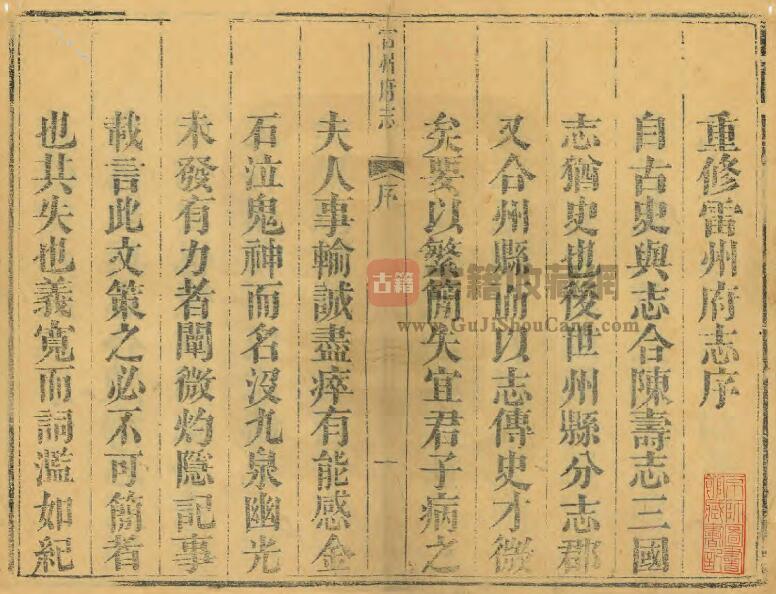 重修雷州府志序
自古史與志合陳壽志三國
志猶史也後世州縣分志郡
又合州縣而以志傳史才微
矣要以繁簡失宜君子病之
雷州府志
序
一
夫人事輸誠盡瘁有能感金
石泣鬼神而名沒九泉幽光
未發有力者闡微灼隱記事
載言此文策之必不可簡者
也其失也義寬而詞濫如紀
古籍
古籍收藏網
www.GuJiShouCang.com